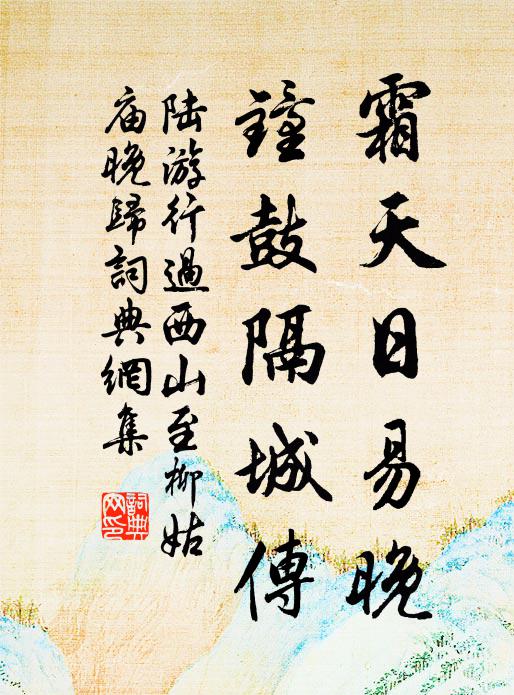 霜天日易晚
鐘鼓隔城傳
陆游行過西山至柳姑
庙晚歸詞典網集
詞典
网印